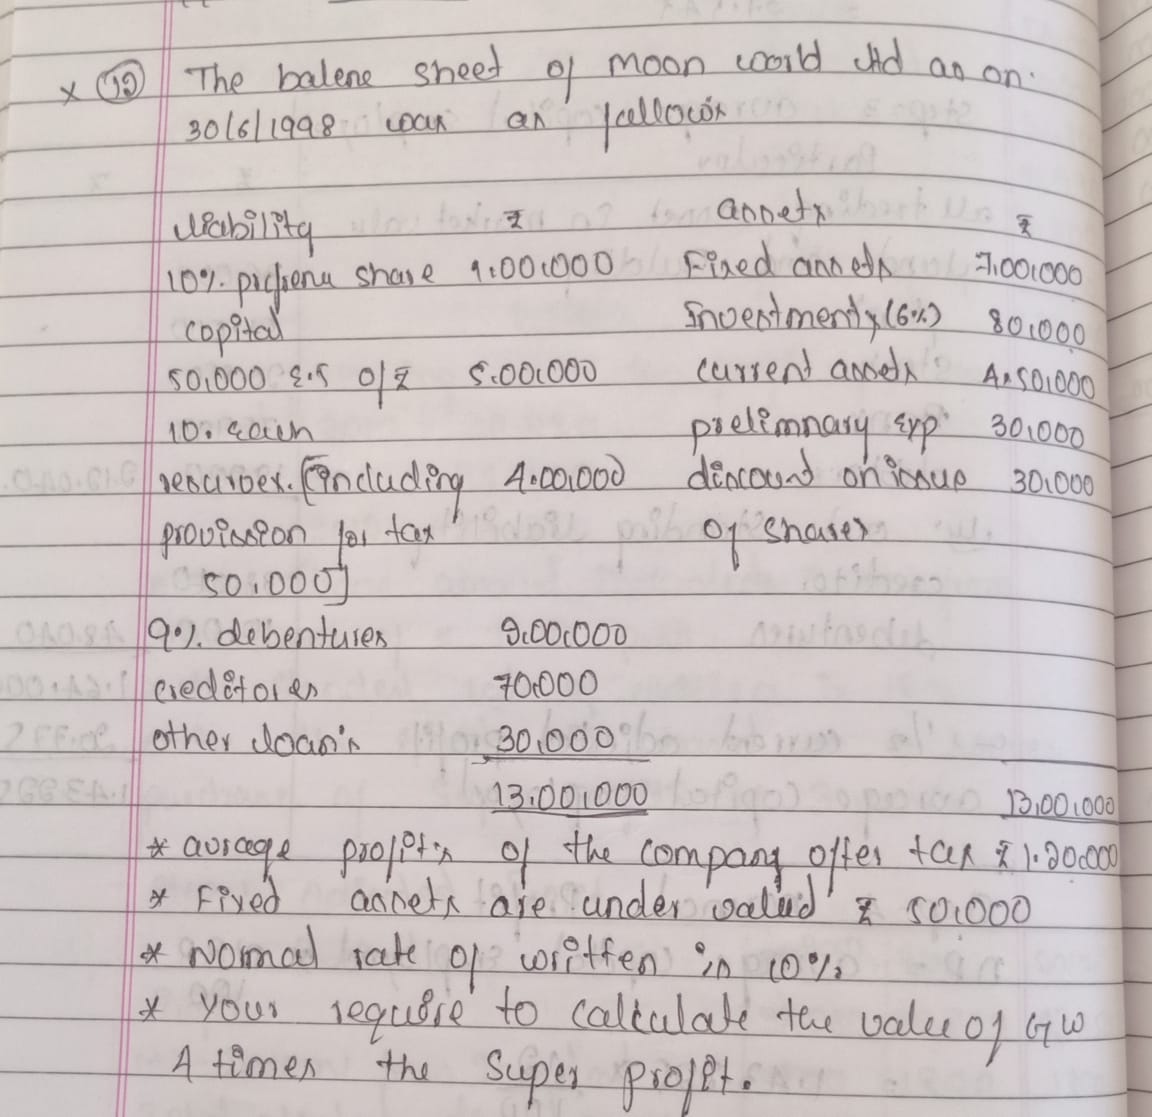 x (12) The balene sheet of moon world Ltd as on.
30/6/1998 was as follows
Liability ₹ assets ₹
10% prefrenu share 1,00,000 Fixed assets 7,00,000
copital Investments (6%) 80,000
50,000 E.S of ₹ 5,00,000 current assets 4,50,000
10. each prelimnary exp 30,000
reserves. [including 4,00,000 discount on issue 30,000
provission for tax of shares
50,000]
9% debentures 2,00,000
creditores 70,000
other loan's 30,000
13,00,000 13,00,000
* avrage profits of the company after tax ₹ 1,20,000
* Fixed assets are under valued ₹ 50,000
* Nomal rate of written is 10%
* your requère to calculate the value of GW
4 times the super profit.